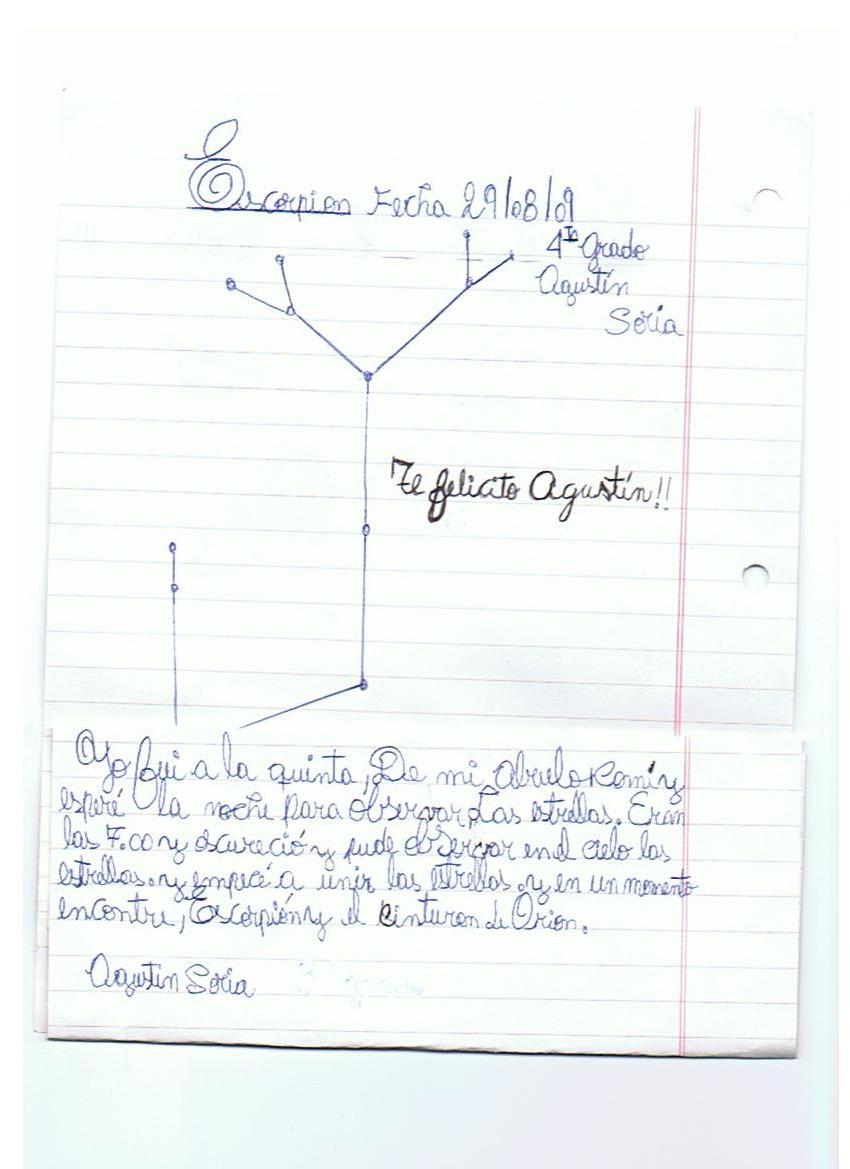 Escorpion Fecha 29/08/09
4ª Grado
Agustín
Soria
Te felicito Agustín!!
Yo fui a la quinta, De mi Abuelo Remi y
esperé la noche para observar Las estrellas. Eran
las 7.00 y oscureció y pude observar en el cielo las
estrellas. y empecé a unir las estrellas. y en un momento
encontre, Escorpión y el Cinturon de Orion.
Agustin Soria